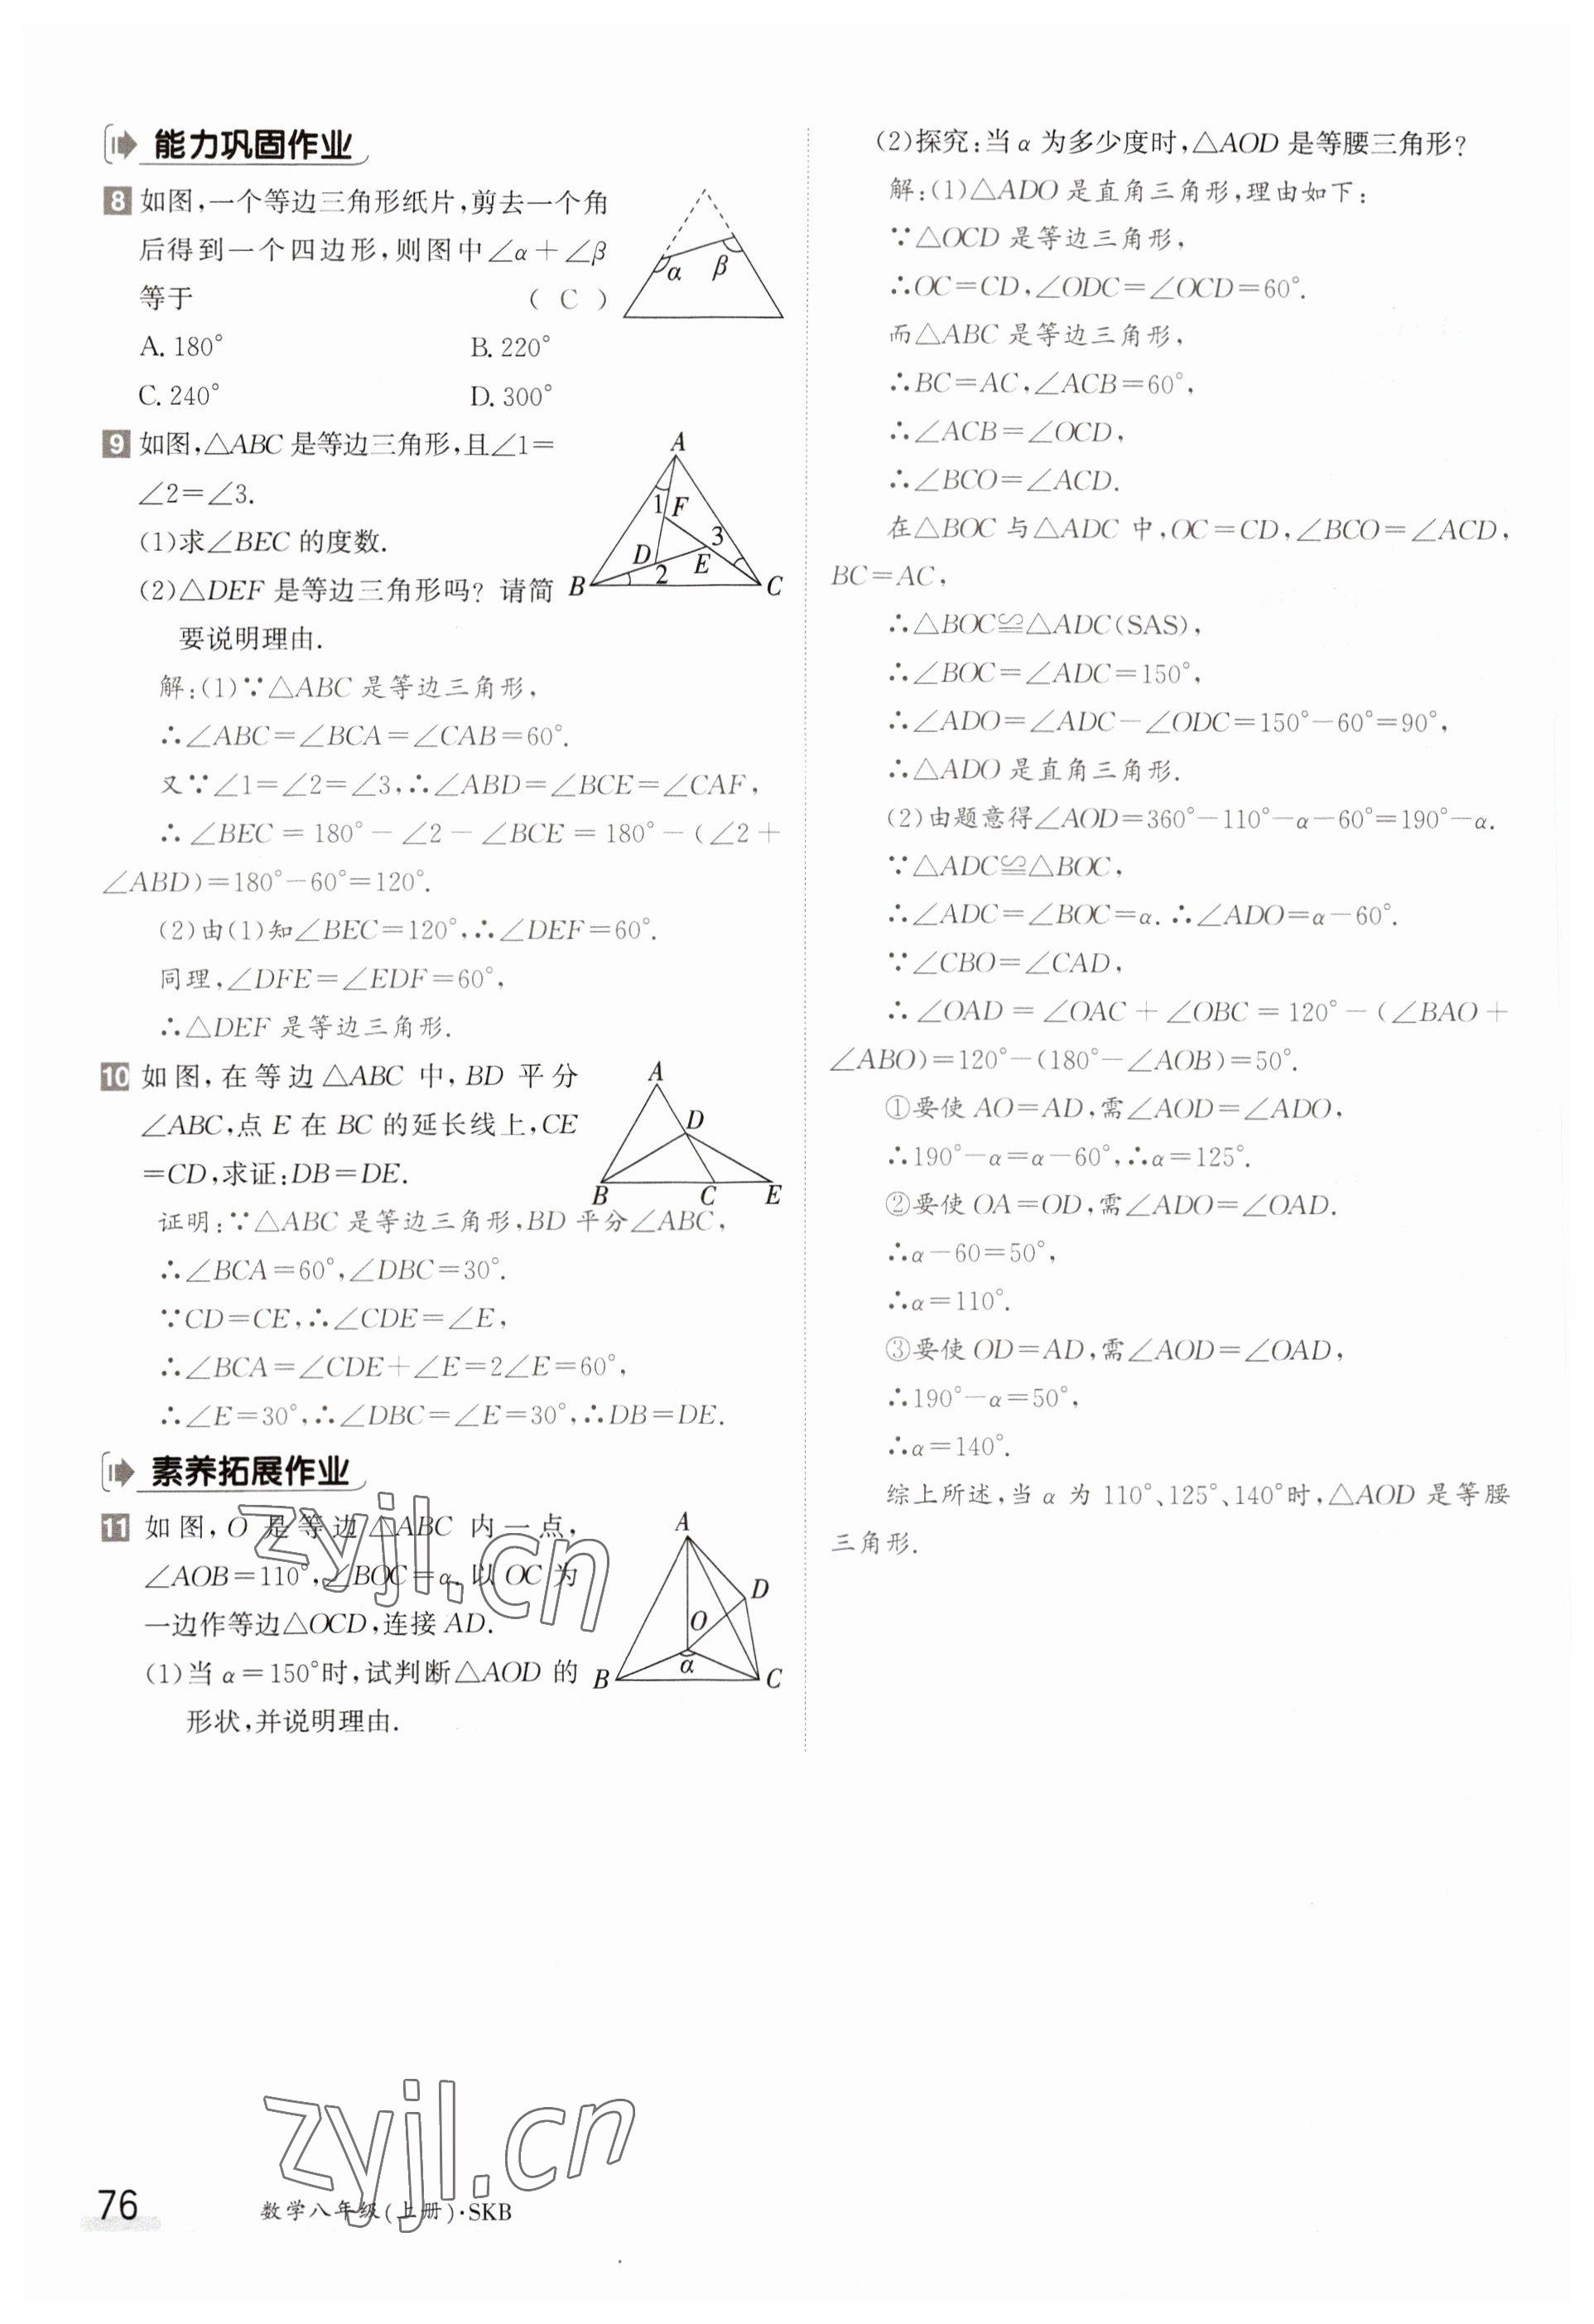 能力巩固作业
8 如图,一个等边三角形纸片,剪去一个角
后得到一个四边形,则图中∠α+∠β
等于 ( C )
α β
A. 180° B. 220°
C. 240° D. 300°
9 如图,△ABC 是等边三角形,且∠1=
∠2=∠3.
(1)求∠BEC 的度数.
(2)△DEF 是等边三角形吗? 请简
要说明理由.
A
1 F
3
D E
B 2 C
解:(1)∵△ABC 是等边三角形,
∴∠ABC=∠BCA=∠CAB=60°.
又∵∠1=∠2=∠3,∴∠ABD=∠BCE=∠CAF,
∴∠BEC=180°-∠2-∠BCE=180°-(∠2+
∠ABD)=180°-60°=120°.
(2)由(1)知∠BEC=120°,∴∠DEF=60°.
同理,∠DFE=∠EDF=60°,
∴△DEF 是等边三角形.
10 如图,在等边△ABC 中,BD 平分
∠ABC,点 E 在 BC 的延长线上,CE
=CD,求证:DB=DE.
A
D
B C E
证明:∵△ABC 是等边三角形,BD 平分∠ABC,
∴∠BCA=60°,∠DBC=30°.
∵CD=CE,∴∠CDE=∠E,
∴∠BCA=∠CDE+∠E=2∠E=60°,
∴∠E=30°,∴∠DBC=∠E=30°,∴DB=DE.
素养拓展作业
11 如图,O 是等边△ABC 内一点,
∠AOB=110°,∠BOC=α. 以 OC 为
一边作等边△OCD,连接 AD.
(1)当 α=150°时,试判断△AOD 的
形状,并说明理由.
A
D
O
B α C
zyjl.cn
(2)探究:当 α 为多少度时,△AOD 是等腰三角形?
解:(1)△ADO 是直角三角形,理由如下:
∵△OCD 是等边三角形,
∴OC=CD,∠ODC=∠OCD=60°.
而△ABC 是等边三角形,
∴BC=AC,∠ACB=60°,
∴∠ACB=∠OCD,
∴∠BCO=∠ACD.
在△BOC 与△ADC 中,OC=CD,∠BCO=∠ACD,
BC=AC,
∴△BOC≌△ADC(SAS),
∴∠BOC=∠ADC=150°,
∴∠ADO=∠ADC-∠ODC=150°-60°=90°,
∴△ADO 是直角三角形.
(2)由题意得∠AOD=360°-110°-α-60°=190°-α.
∵△ADC≌△BOC,
∴∠ADC=∠BOC=α.∴∠ADO=α-60°.
∵∠CBO=∠CAD,
∴∠OAD=∠OAC+∠OBC=120°-(∠BAO+
∠ABO)=120°-(180°-∠AOB)=50°.
①要使 AO=AD,需∠AOD=∠ADO,
∴190°-α=α-60°,∴α=125°.
②要使 OA=OD,需∠ADO=∠OAD.
∴α-60=50°,
∴α=110°.
③要使 OD=AD,需∠AOD=∠OAD,
∴190°-α=50°,
∴α=140°.
综上所述,当 α 为 110°、125°、140°时,△AOD 是等腰
三角形.
zyjl.cn
76 数学八年级(上册)·SKB